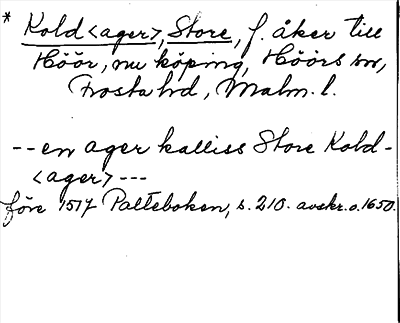 * Kold<ager>, Store, f. åker till
Höör, nu köping, Höörs sn,
Frosta hd, Malm. l.
-- en ager kalliss Store Kold-
<ager> ---
före 1517 Palteboken, s. 210. avskr. o. 1650.